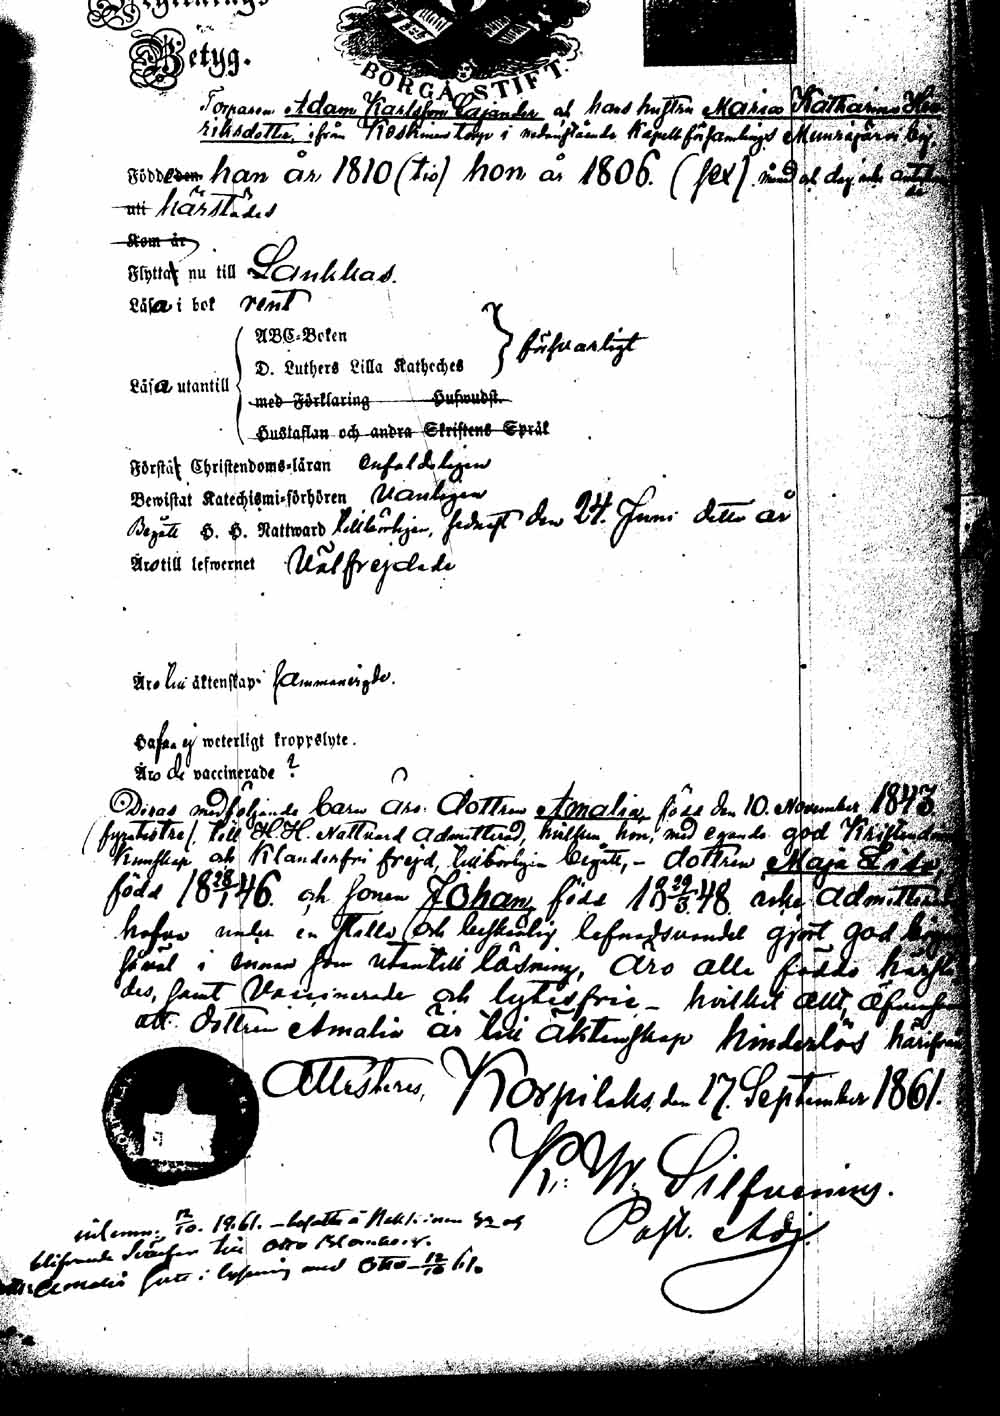 Betyg.
BORGÅ STIFT.
Torparen Adam Karlsson Cajander och hans hustru Maria Katharina Hen-
riksdotter, ifrån Koskinens torp i nedanstående Kapellförsamlings Munnajärvi by,
Födde den han år 1810 (tio) hon år 1806. (sex) månad och dag icke antecknade
uti härstädes
Kom år
Flytta nu till Laukkas.
Läsa i bok rent
ABC-Boken
försvarligt
D. Luthers Lilla Katheches
Läsa utantill
med Förklaring Huswudst.
Hustaflan och andra Skriftens Språk
Förstå Christendoms-läran enfaldeligen
Bewistat Katechismi-förhören vanligen
Begått H. H. Nattward tillbörligen, sednast den 24. Juni detta år
Äro till lefwernet Välfrejdade
Äro till äktenskap sammanvigde.
Hafva ej weterligt kroppslyte.
Äro de vaccinerade ?
Deras medföljande barn äro: dottren Amalia, född den 10. November 1843
(fyratiotre), till H.H. Nattvard admitterad, hvilken hon, med egande god Kristendoms
Kunskap och Klanderfri frejd, tillbörligen begått, – dottren Maja Lisa,
född 18 28/1 46. och sonen Johan, född 18 29/3 48 icke admitterade
hafva under en stilla och beskedlig lefnadsvandel gjort god början
såväl i innan som utantill läsning, äro alla födda härstä-
des, samt vaccinerade och lytesfria – hvilket allt, äfvensom
att dottren Amalia är till äktenskap hinderlös härifrån
Attesteras, Korpilaks, den 17. September 1861.
K: W. Silfvenius.
Past. Adj.
inlemn. 12/10. 1861. –
till Otto Blomberg.
Amalia i lysning med Otto – 12/10 61.